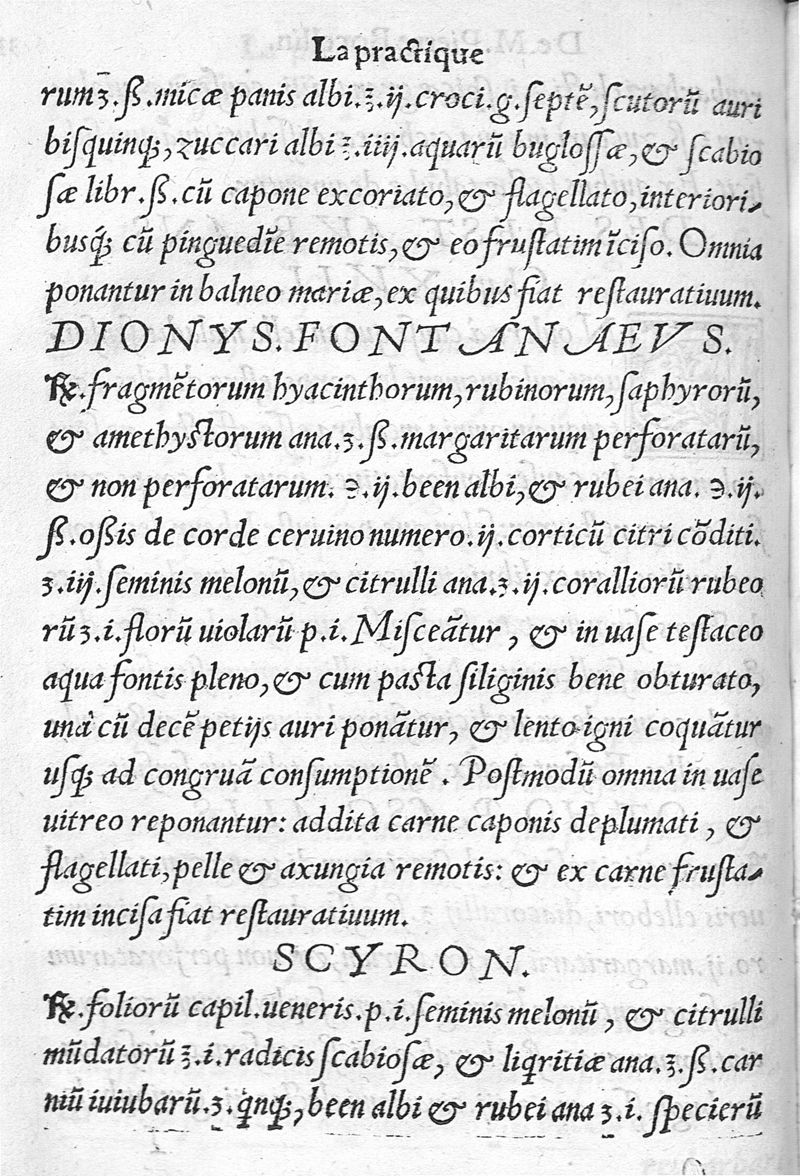 La practique
rumʒ.ß.micæ panis albi.℥.ij.croci.g.septē,scutorū auri
bisquinq;,zuccari albi ℥.iiij.aquarū buglossæ,& scabio
sæ libr.ß.cū capone excoriato,& flagellato,interiori-
busq́; cū pinguedīe remotis,& eo frustatim īciso. Omnia
ponantur in balneo mariæ,ex quibus fiat restauratiuum.
DIONYS. FONTANAEVS.
℞.fragmētorum hyacinthorum,rubinorum,saphyrorū,
& amethystorum ana.ʒ.ß.margaritarum perforatarū,
& non perforatarum.℈.ij.been albi,& rubei ana.℈.ij.
ß.oßis de corde ceruino numero.ij.corticū citri cōditi.
ʒ.iij.seminis melonū,& citrulli ana.ʒ.ij.coralliorū rubeo
rūʒ.i.florū uiolarū p.i.Misceātur , & in uase testaceo
aqua fontis pleno,& cum pasta siliginis bene obturato,
unà cū decē petijs auri ponātur, & lento igni coquātur
usq; ad congruā consumptionē . Postmodū omnia in uase
uitreo reponantur: addita carne caponis deplumati , &
flagellati,pelle & axungia remotis: & ex carne frusta-
tim incisa fiat restauratiuum.
SCYRON.
℞.foliorū capil.ueneris.p.i.seminis melonū , & citrulli
mūdatorū ℥.i.radicis scabiosæ, & liqritiæ ana.℥.ß.car
niū iuiubarū.ʒ.qnq;,been albi & rubei ana ʒ.i. specierū